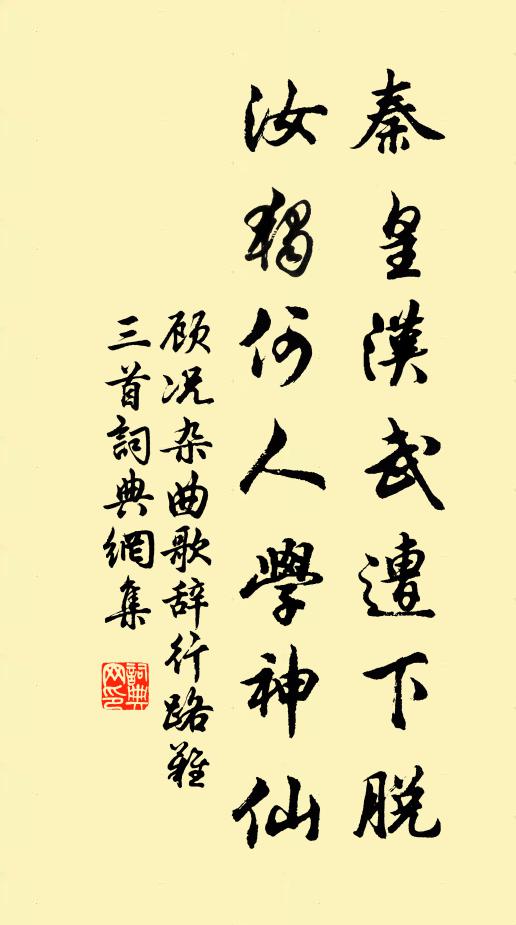 秦皇漢武遭下脫
汝獨何人學神仙
顾况杂曲歌辞行路难
三首詞典網集
詞典网印